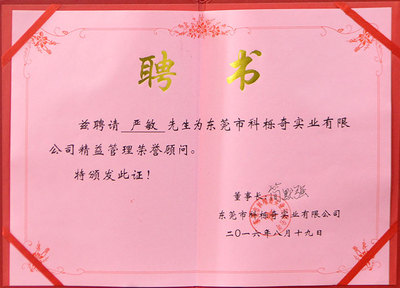 聘书
兹聘请 严敏 先生为东莞市科栎奇实业有限
公司精益管理荣誉顾问。
特颁发此证！
董事长
东莞市科栎奇实业有限公司
二〇一六年八月十九日